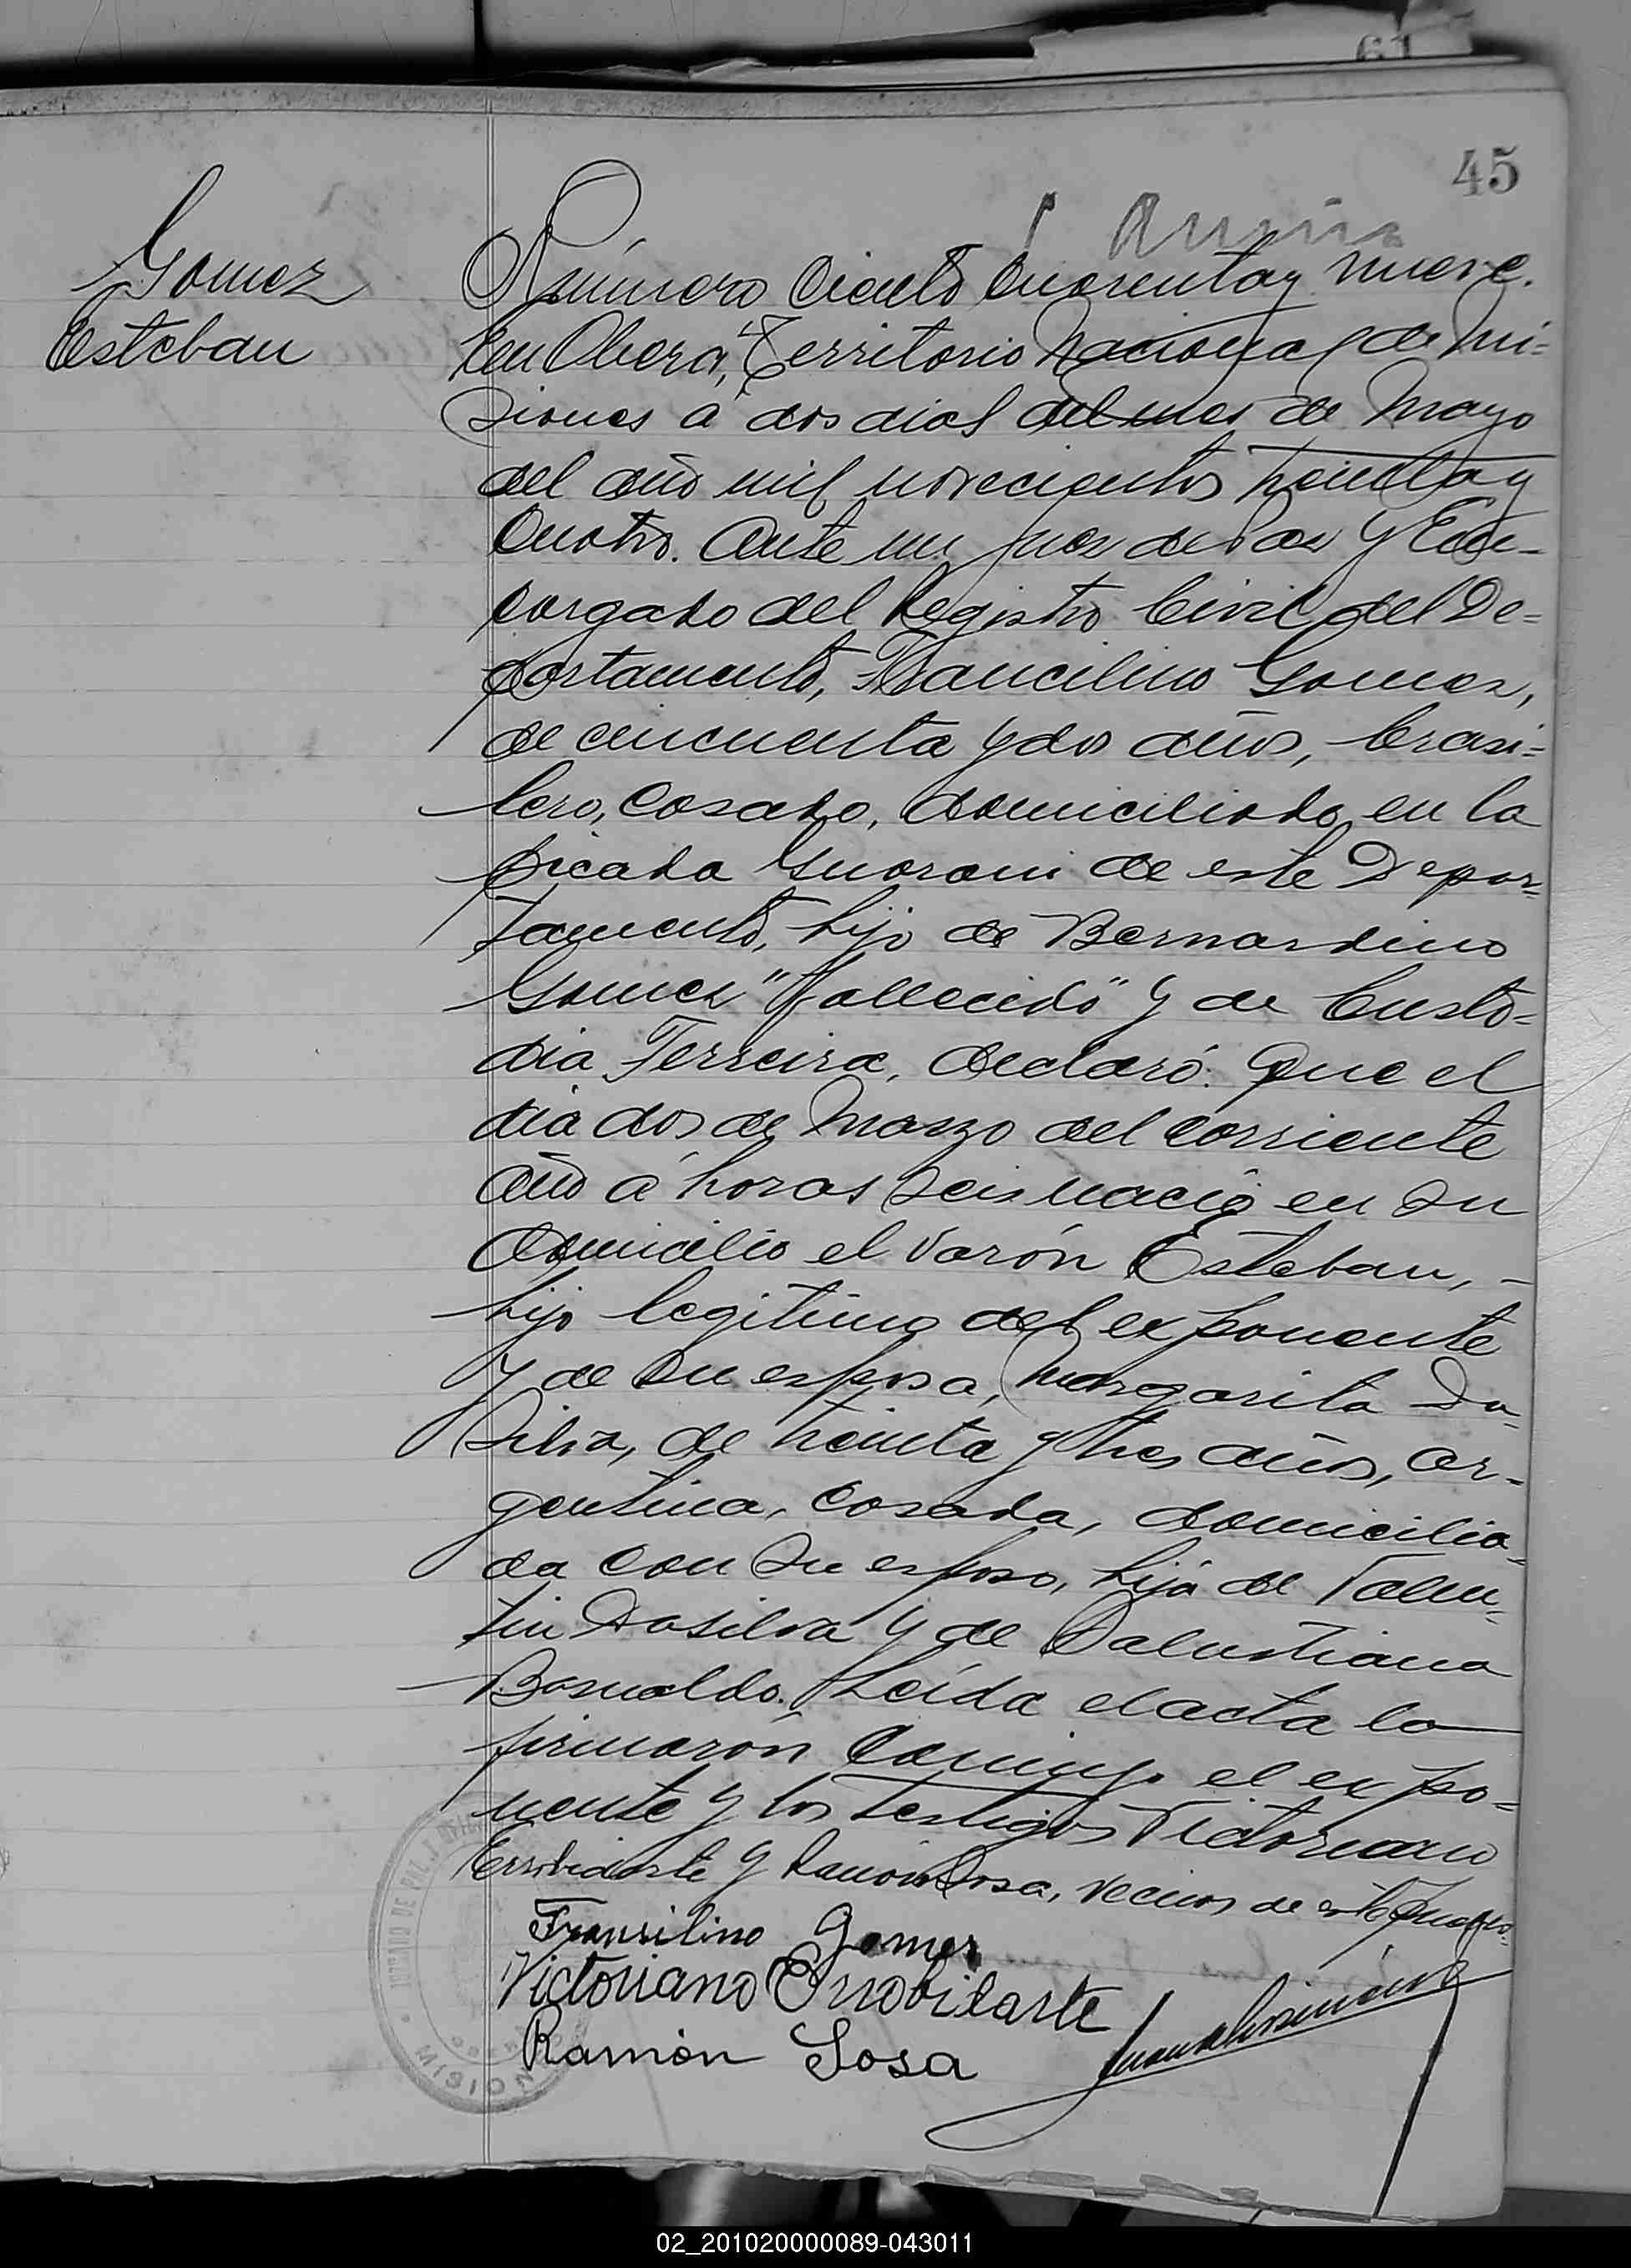 61
45
Gomez
Esteban
Número Ciento Cuarenta y nueve.
En Obera, Territorio Nacional de Mi=
siones á dos dias del mes de Mayo
del año mil novecientos treinta y
Cuatro. Ante mi Juez de Paz y En-
cargado del Registro Civil del De=
partamento, Francilino Gomez,
de cincuenta y dos años, brasi=
lero, Casado, domiciliado en la
picada Guarani de este Depar=
tamento, hijo de Bernardino
Gomez "fallecido" y de Custo-
dia Ferreira, declaró: Que el
dia dos de Marzo del corriente
año á horas seis nació en su
domicilio el varón Esteban, -
hijo legitimo del exponente
y de su esposa, Margarita Da
Silva, de treinta y tres años, ar-
gentina, Casada, domicilia-
da con su esposo, hija de Valen-
tin Dasilva y de Salustiana
Basualdo. Leída el acta la
firmarón Conmigo el expo=
nente y los testigos Victoriano
Errobidarte y Ramon Sosa, vecinos de este
Fransilino Gomes
Victoriano Errobidarte
Ramón Sosa
JUZGADO DE PAZ
MISIONES
02_201020000089-043011